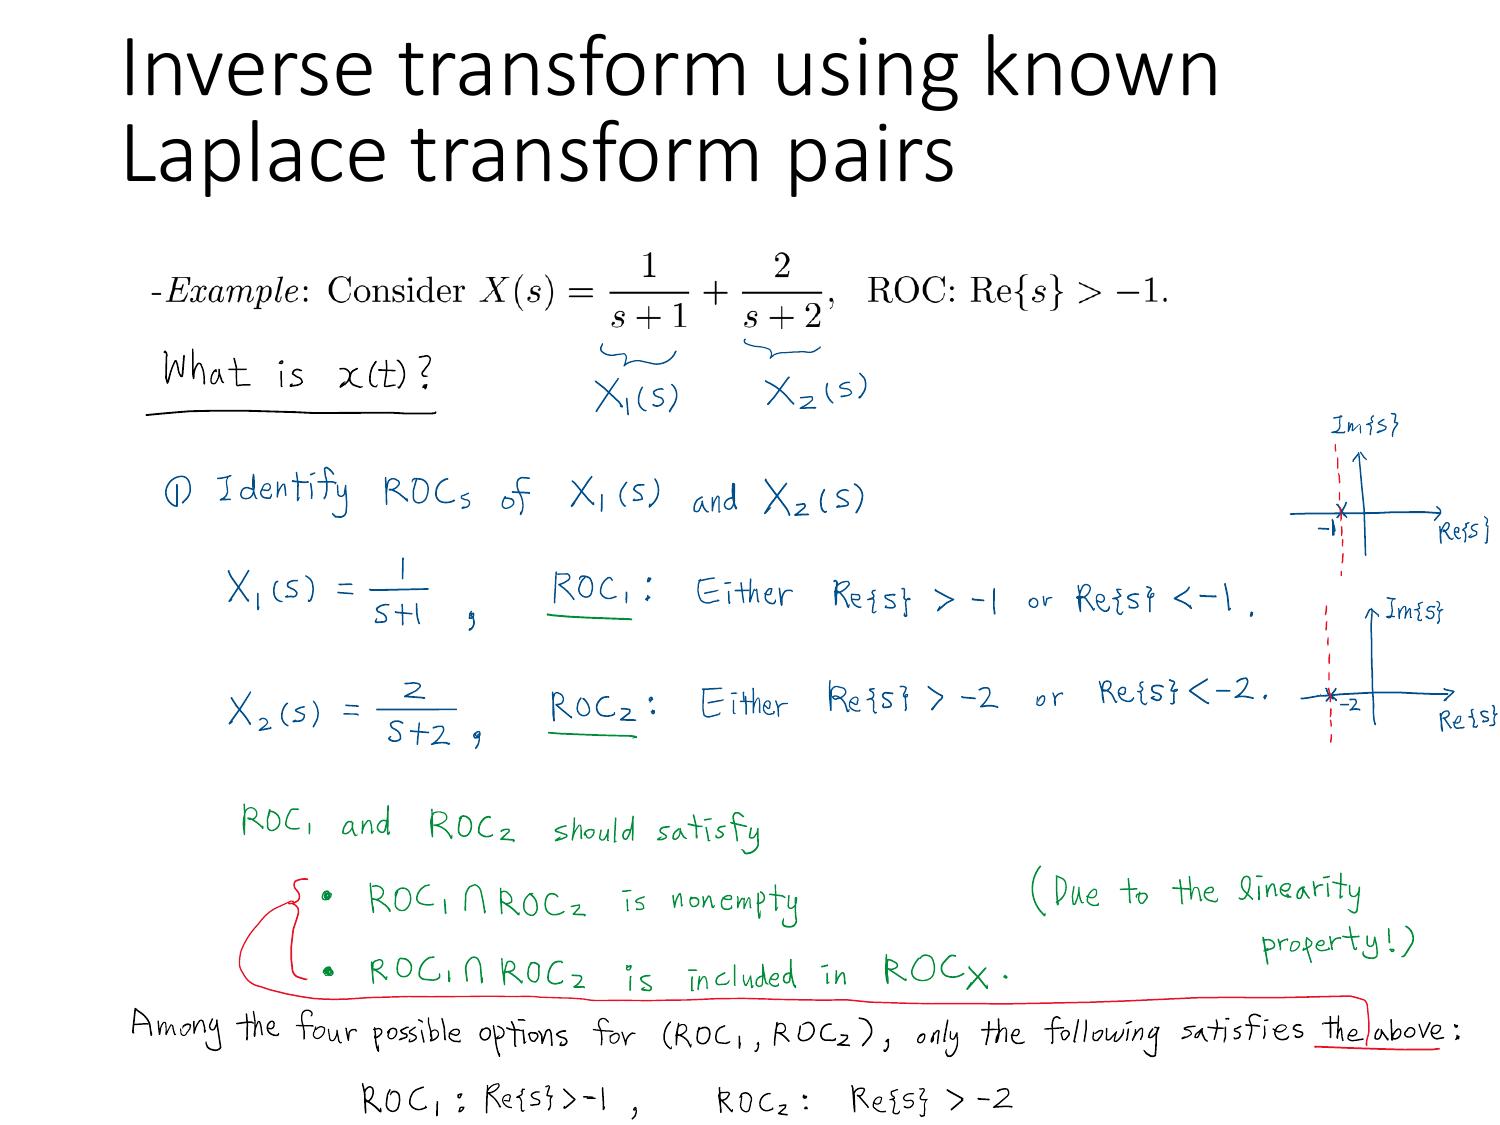 Inverse transform using known
Laplace transform pairs
-Example: Consider X(s) = 1/(s + 1) + 2/(s + 2), ROC: Re{s} > −1.
What is x(t)?
X₁(s) X₂(s)
① Identify ROCs of X₁(s) and X₂(s)
Im{s}
-1
Re{s}
X₁(s) = 1/(s+1), ROC₁: Either Re{s} > -1 or Re{s} < -1.
Im{s}
-2
Re{s}
X₂(s) = 2/(s+2), ROC₂: Either Re{s} > -2 or Re{s} < -2.
ROC₁ and ROC₂ should satisfy
• ROC₁ ∩ ROC₂ is nonempty (Due to the linearity
property!)
• ROC₁ ∩ ROC₂ is included in ROCₓ.
Among the four possible options for (ROC₁, ROC₂), only the following satisfies the above:
ROC₁: Re{s} > -1, ROC₂: Re{s} > -2